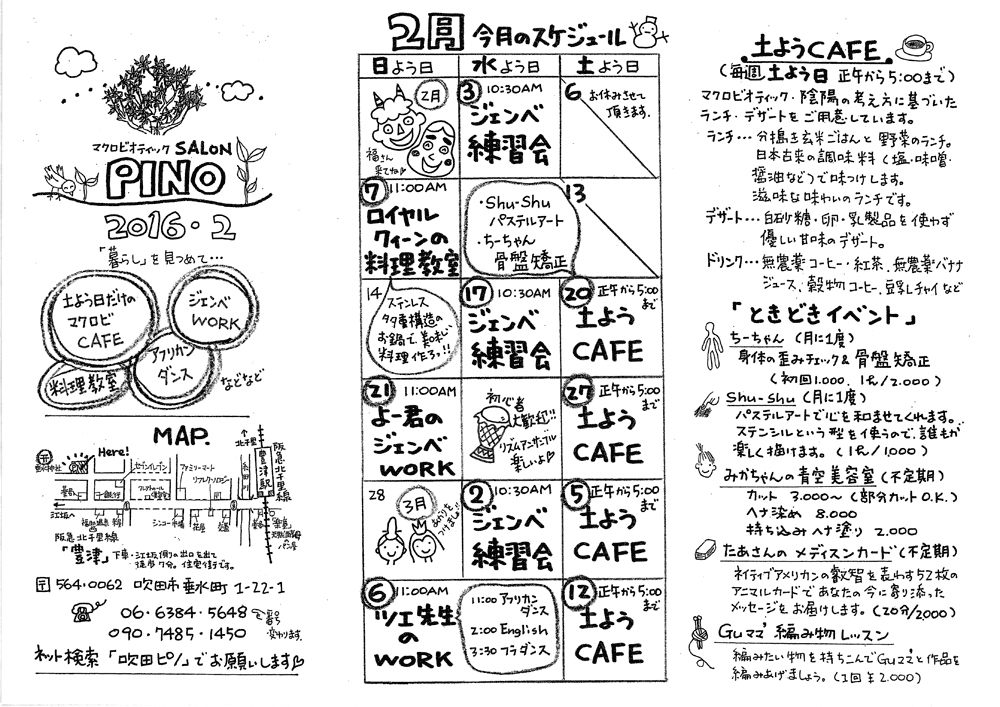 マクロビオティック SALON
PINO
2016・2
「暮らし」を見つめて…
土よう日だけの
マクロビ
CAFE
ジェンベ
WORK
料理教室
アフリカン
ダンス
などなど
MAP.
Here!
セブンイレブン
ファミリーマート
北千里
阪急北千里線
豊津駅
江坂へ
阪急北千里線
「豊津」
下車・江坂側の出口を出て
徒歩7分。住宅街です。
〒564-0062 吹田市垂水町1-22-1
06・6384・5648
090・7485・1450
番号
変わります。
ネット検索「吹田ピノ」でお願いします
2月 今月のスケジュール
日よう日
水よう日
土よう日
2月
福さん
来てね
3 10:30AM
ジェンベ
練習会
6 お休みさせて
頂きます。
7 11:00AM
ロイヤル
クィーンの
料理教室
・Shu-Shu
パステルアート
・ちーちゃん
骨盤矯正
13
14
ステンレス
多重構造の
お鍋で、美味しい
料理作ろう!!
17 10:30AM
ジェンベ
練習会
20 正午から5:00
まで
土よう
CAFE
21 11:00AM
よー君の
ジェンベ
WORK
初心者
大歓迎!!
リズムアンサンブル
楽しいよ
27 正午から5:00
まで
土よう
CAFE
28
3月
2 10:30AM
ジェンベ
練習会
5 正午から5:00
まで
土よう
CAFE
6
ツエ先生
の
WORK
11:00 アフリカン
ダンス
2:00 English
3:30 フラダンス
12 正午から5:00
まで
土よう
CAFE
土ようCAFE
(毎週土よう日 正午から5:00まで)
マクロビオティック・陰陽の考え方に基づいた
ランチ・デザートをご用意しています。
ランチ…分搗き玄米ごはんと野菜のランチ。
日本古来の調味料(塩・味噌・
醤油など)で味つけします。
滋味な味わいのランチです。
デザート…白砂糖・卵・乳製品を使わず
優しい甘味のデザート。
ドリンク…無農薬コーヒー・紅茶、無農薬バナナ
ジュース、穀物コーヒー、豆乳チャイなど
「ときどきイベント」
ちーちゃん (月に1度)
身体の歪みチェック&骨盤矯正
(初回1,000. 1人/2,000)
Shu-Shu (月に1度)
パステルアートで心を和ませてくれます。
ステンシルという型を使うので、誰もが
楽しく描けます。(1人/1,000)
みかちゃんの青空美容室(不定期)
カット 3.000〜(部分カットO.K.)
ヘナ染め 8.000
持ち込みヘナ塗り 2.000
たあさんのメディスンカード(不定期)
ネイティブアメリカンの叡智を表わす52枚の
アニマルカードであなたの今に寄り添った
メッセージをお届けします。(20分/2,000)
Guママ 編み物レッスン
編みたい物を持ちこんでGuママと作品を
編みあげましょう。(1回¥2.000)